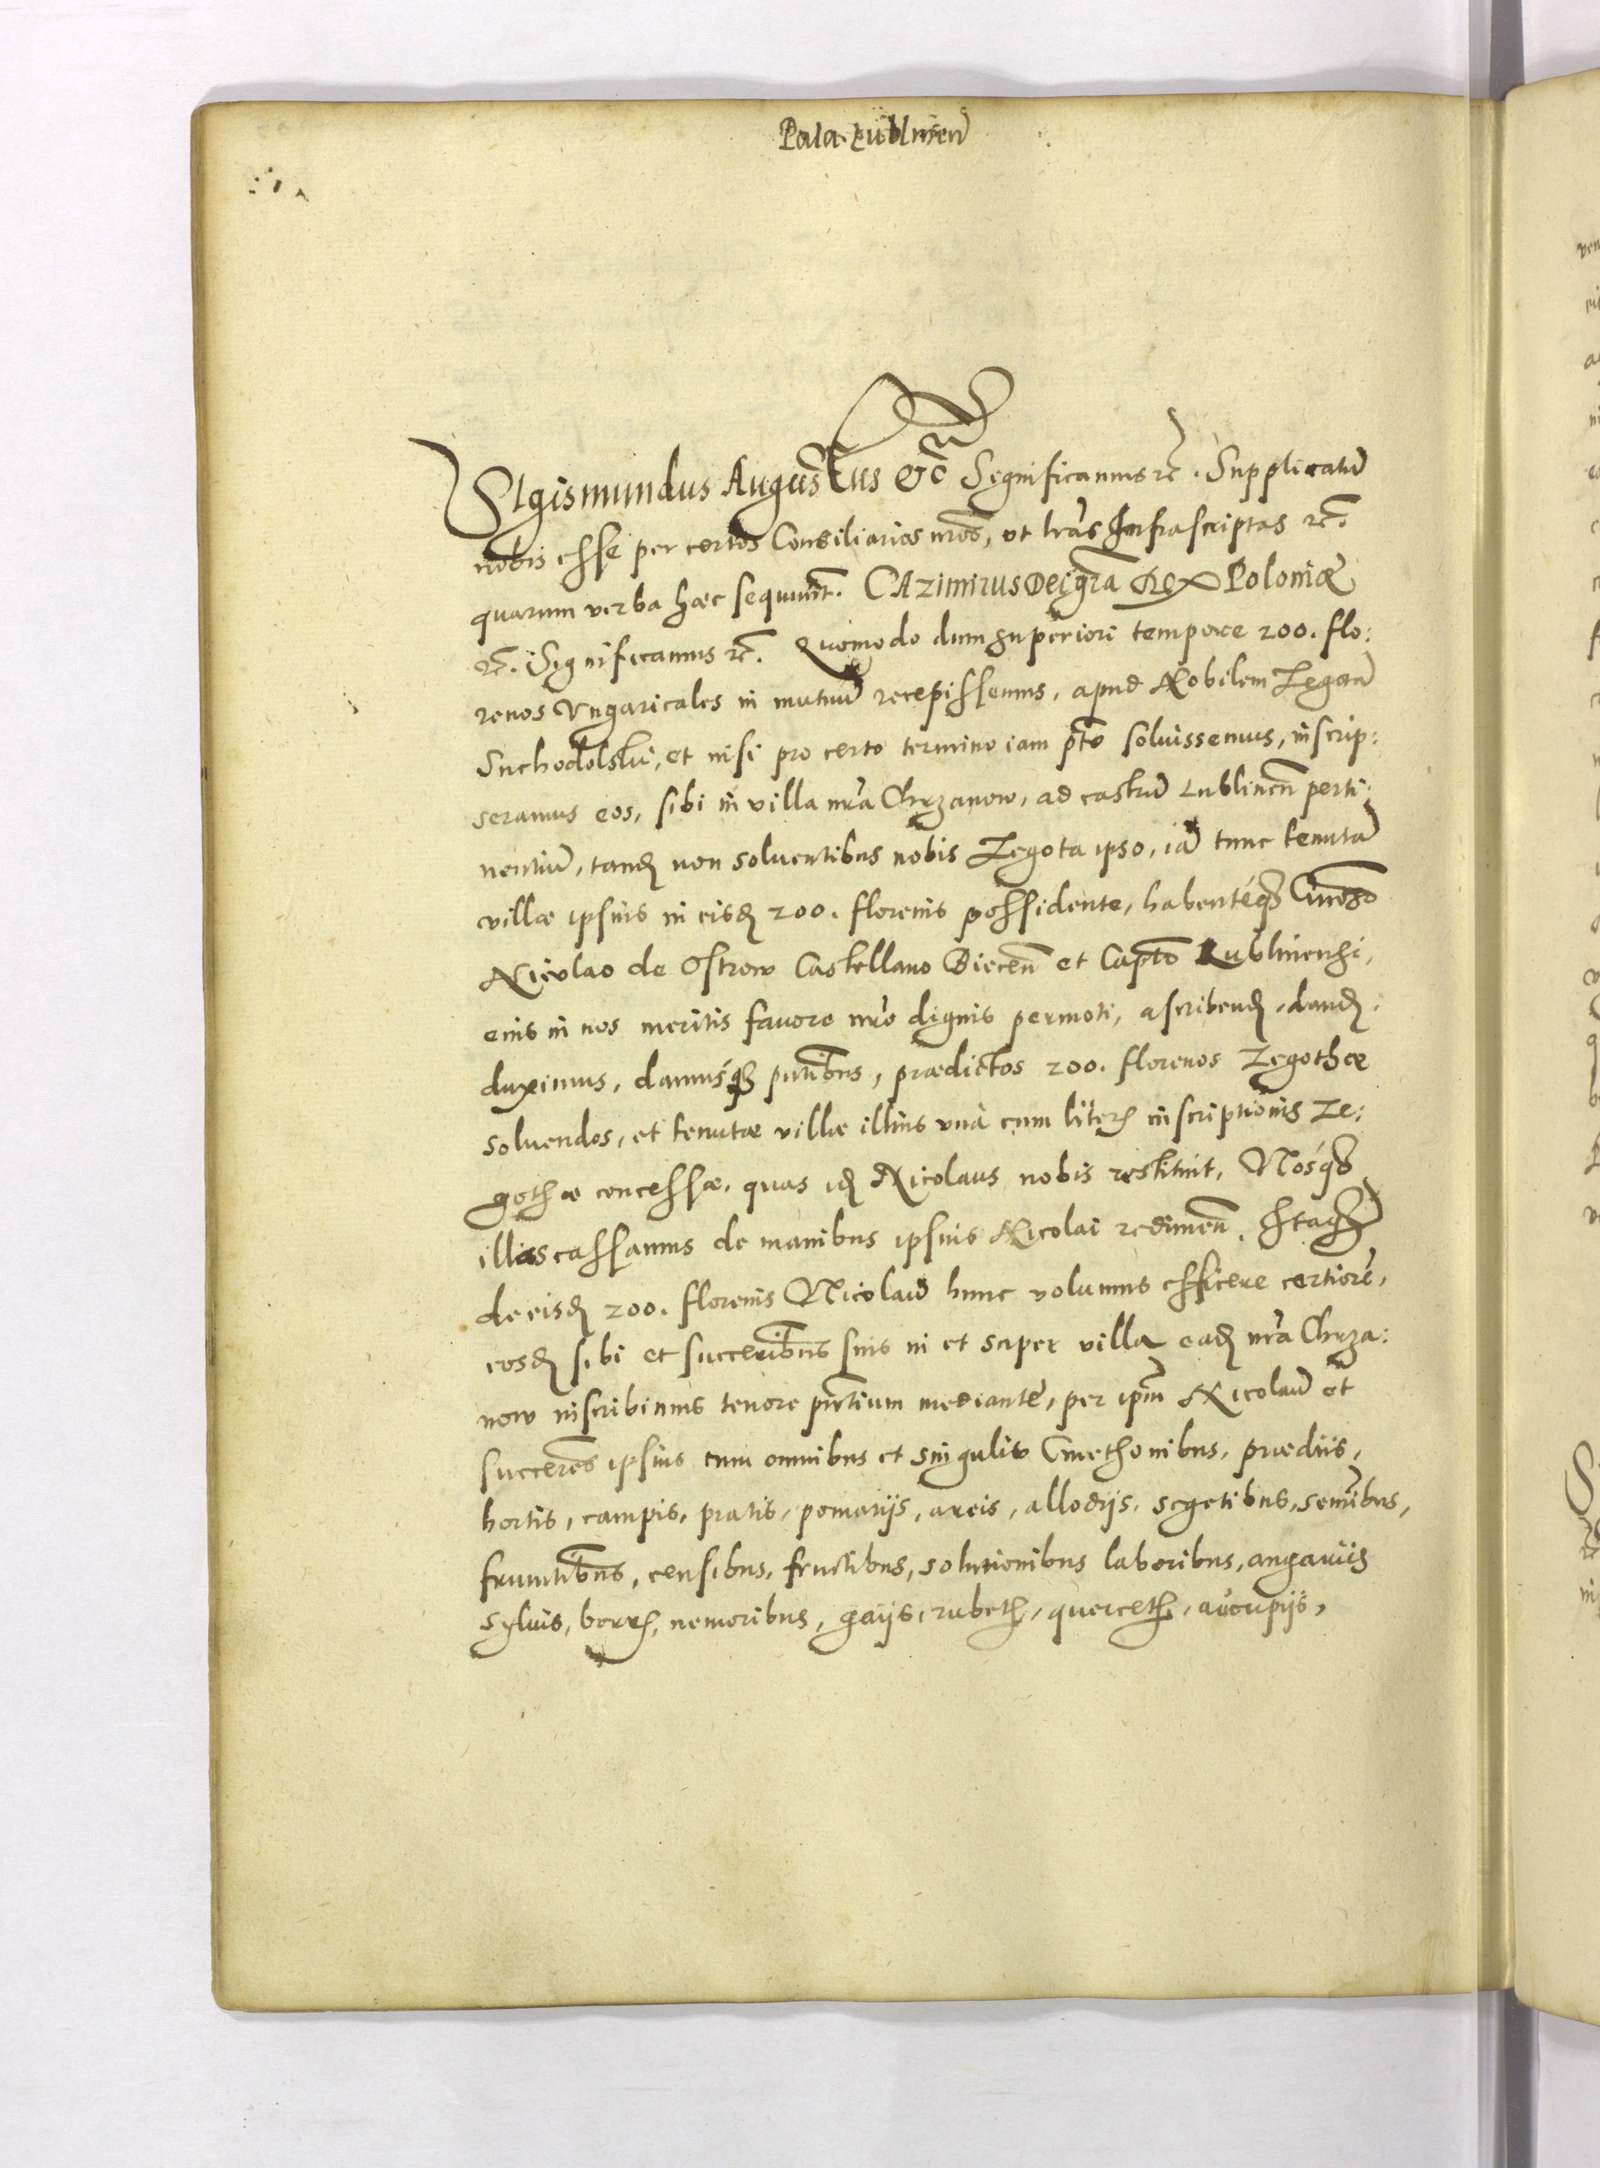 Pala. Lublinen̄
SIgismundus Augustus etc̄ Significamus rc̄. Supplicatū
nobis esse per certos Consiliarios nrōs, ut lrās Infrascriptas rc̄.
quarum verba haec sequunt̄. CAzimirus Dei grā Rex Poloniae
rc̄. Significamus rc̄. Quomodo dum superiori tempore 200. flo:
renos Vngaricales in mutuū recepissemus, apud Nobilem Zegotā
Suchodolski, et nisi pro certo termino iam pt̄o soluissemus, inscrip:
seramus eos, sibi in villa nrā Chrzanow, ad castrū Lublinen̄ perti:
nentiū, tandꝫ non soluentibus nobis Zegota ipso, iā tunc tenutā
villae ipsius in eisdꝫ 200. florenis possidente, habentéqꝫ
Nicolao de Ostrow Castellano Diecen̄ et Capt̄o Lublinensi,
eius in nos meritis favore nrō dignis permoti, ascribendꝫ, dandꝫ:
duximus, damúsqꝫ pn̄tibus, praedictos 200. florenos Zegothae
soluendos, et tenutae villae illius unà cum literꝫ inscriptionis Ze:
gothae concessae, quas idꝫ Nicolaus nobis restituit, Nósqꝫ
illas cassamus de manibus ipsius Nicolai redimen̄. Itaqꝫ
de eisdꝫ 200. florenis Nicolaū hunc volumus efficere certiorē,
eosdꝫ sibi et succeribus suis in et super villa eadꝫ nrā Chrza:
now inscribimus tenore pn̄tium mediante, per ipm̄ Nicolaū et
succeres̄ ipsius cum omnibus et singulis Cmethonibus, praediis,
hortis, campis, pratis, pomariis, areis, allodijs, segetibus, semībus,
frumt̄ibus, censibus, fructibus, solutionibus laboribus, angariis
syluis, borrꝫ, nemoribus, gaijs, rubetꝫ, quercetꝫ, aucupijs,